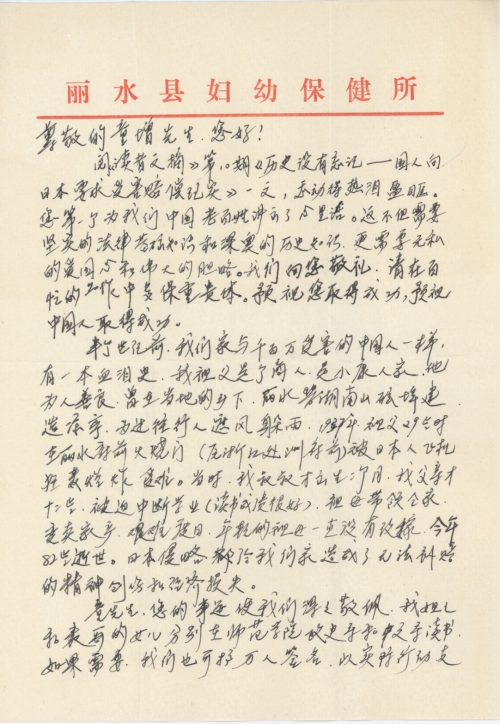 丽水县妇幼保健所
尊敬的童增先生、您好!
阅读贵文摘》第10期《历史没有忘记——国人向
日本要求受害赔偿纪实》一文,感动得热泪盈眶。
您第一个为我们中国老百姓讲了心里话。这不但需要
坚实的法律基础知识和深奥的历史知识,更需要无私
的爱国心和伟大的胆略。我们向您敬礼,请在百
忙的工作中多保重贵体。预祝您取得成功,预祝
中国人取得成功。
半个世纪前,我们家与千百万受害的中国人一样,
有一本血泪史,我祖父是个商人,是小康人家,他
为人善良,曾在当地的乡下,丽水碧湖南山
造凉亭,为过往行人遮风躲雨。1937年,祖父29岁时
在丽水府前大晓门(原浙江处州府前)被日本人飞机
狂轰烂炸,
当时,我叔叔才出生 个月,我父亲才
十 岁,被迫中断学业(读书成绩很好),祖母带领全家
变卖家产,艰难度日,年轻的祖母一直没有改嫁,今年
82岁逝世。日本侵略 给我们家造成了无法补赔
的精神创伤和经济损失。
童先生,您的事迹使我们深深敬佩,我姐姐
和表哥的女儿分别在师范学院政史系和中文系读书,
如果需要,我们也可找万人签名,以实际行动支